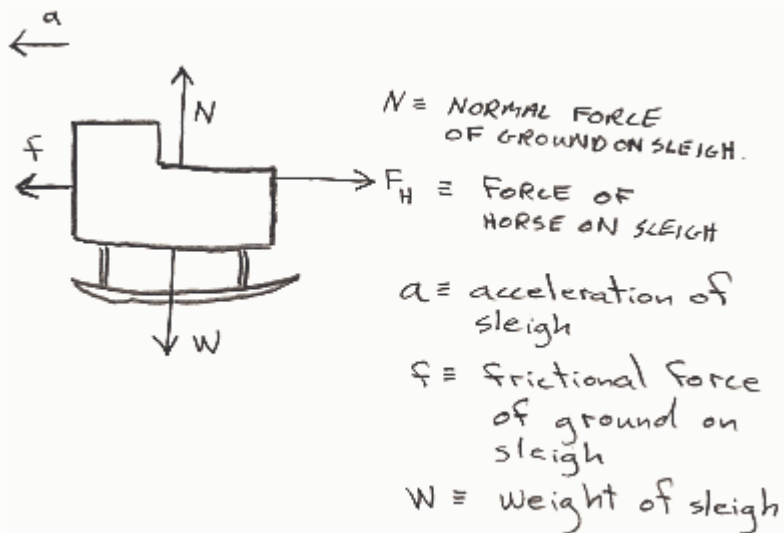 a
N
f
F_H
W
N ≡ NORMAL FORCE
OF GROUND ON SLEIGH.
≡ FORCE OF
HORSE ON SLEIGH
a ≡ acceleration of
sleigh
f ≡ frictional force
of ground on
sleigh
W ≡ weight of sleigh